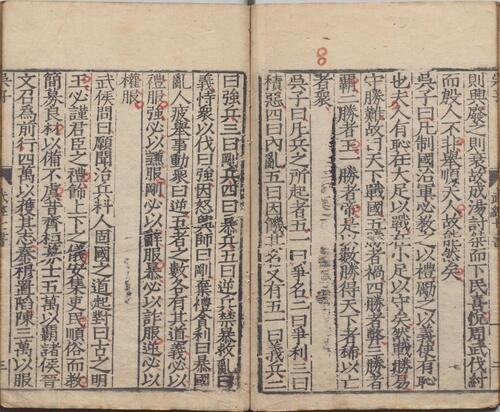 則興廢之則衰故成湯討桀而下民喜悅周武伐紂
而殷人不非舉順天人故能然矣
吳子曰凡制國治軍必教之以禮勵之以義使有恥
也夫人有恥在大足以戰在小足以守矣然戰勝易
守勝難故曰天下戰國五勝者禍四勝者弊三勝者
霸二勝者王一勝者帝是以數勝得天下者稀以亡
者衆
吳子曰凡兵之所起者五一曰爭名二曰爭利三曰
積惡四曰內亂五曰因饑其名又有五一曰義兵二
曰強兵三曰剛兵四曰暴兵五曰逆兵禁暴救亂曰
義恃衆以伐曰強因怒興師曰剛棄禮貪利曰暴國
亂人疲舉事動衆曰逆五者之數各有其道義必以
禮服強必以謙服剛必以辭服暴必以詐服逆必以
權服
武侯問曰願聞治兵料人固國之道起對曰古之明
王必謹君臣之禮飾上下之儀安集吏民順俗而教
簡募良材以備不虞昔齊桓募士五萬以霸諸侯晉
文召為前行四萬以獲其志秦穆置陷陳三萬以服
8